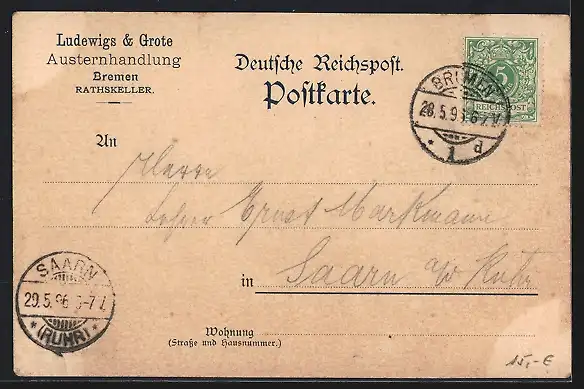 Ludewigs & Grote
Austernhandlung
Bremen
RATHSKELLER.
Deutsche Reichspost.
Postkarte.
5
REICHSPOST
BREMEN
28.5.96 6-7 V.
* 1 d
An
Herrn
Lehrer Ernst Markmann
in Saarn a/d Ruhr
SAARN
29.5.96 6-7 V.
* (RUHR) *
Wohnung
(Straße und Hausnummer.)
15,- €